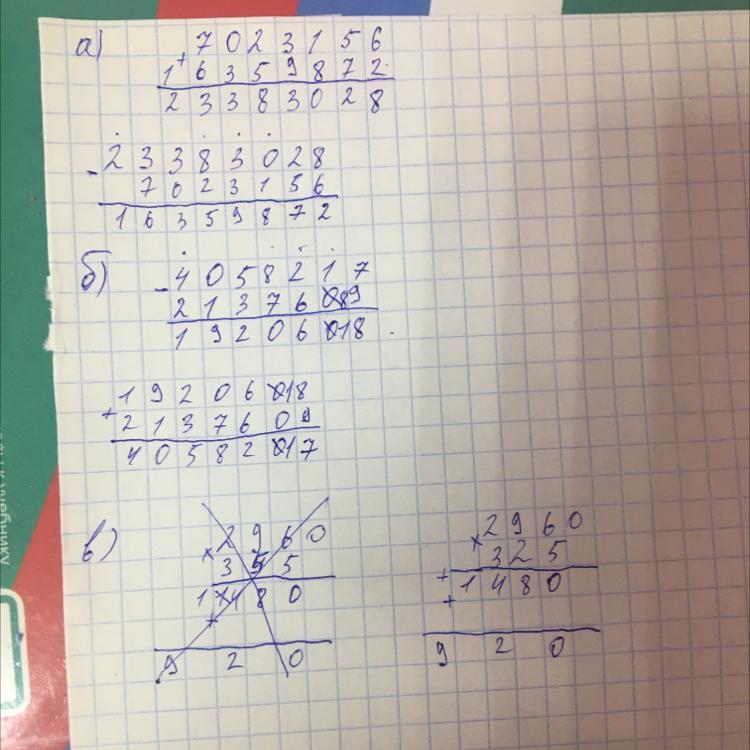 а)
+ 7 0 2 3 1 5 6
1 6 3 5 9 8 7 2
2 3 3 8 3 0 2 8
- 2 3 3 8 3 0 2 8
7 0 2 3 1 5 6
1 6 3 5 9 8 7 2
б)
- 4 0 5 8 2 1 7
2 1 3 7 6 0 9
1 9 2 0 6 0 8
+ 1 9 2 0 6 0 8
2 1 3 7 6 0 9
4 0 5 8 2 1 7
в)
× 2 9 6 0
3 5 5
1 4 8 0
+
9 2 0
× 2 9 6 0
3 2 5
+ 1 4 8 0
+
9 2 0